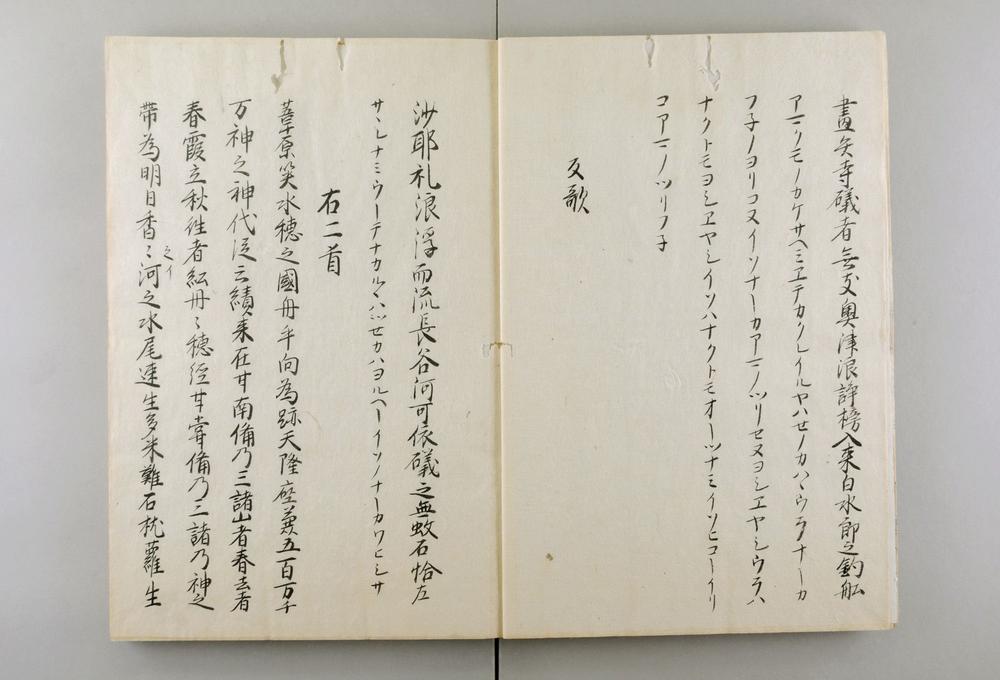 畫矣寺礒者無友奥津浪諍榜入来白水郎之釣舩
アマクモノカケサヘミエテカクレイルヤハセノカハヽウラナーカ
フ子ノヨリコヌイソナーカアマノツリセヌヨシエヤシウラハ
ナクトモヨシエヤシイソハナクトモオーツナミイソヒコーイリ
コアマノツリフ子
反歌
沙耶礼浪浮而流長谷河可依礒之無蚊不怜左
サヽレナミウーテナカルヽハツセカハヨルヘーイソノナーカワヒシサ
右二首
葦原笑水穂之國丹手向為跡天降座兼五百万千
万神之神代従云續来在甘南備乃三諸山者春去者
春霞立秋徃者紅丹ミ穂經甘甞備乃三諸乃神之
帶為明日香ミ河之水尾速生多米難石枕蘿生
之イ